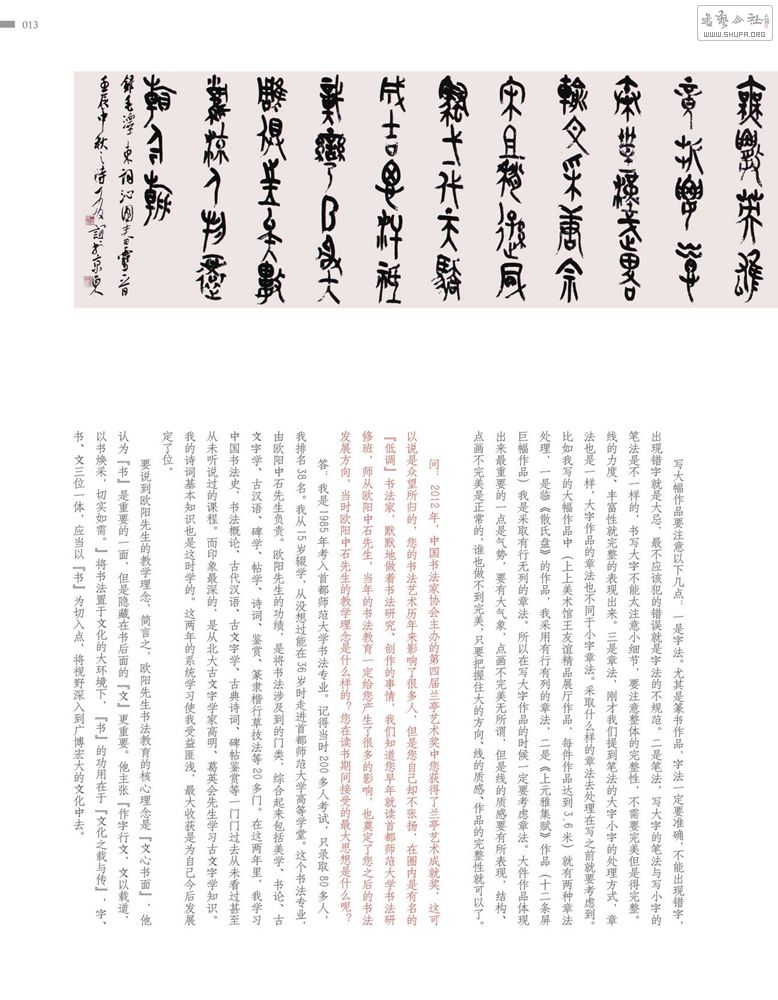 013
書藝公社
WWW.SHUFA.ORG
無數英雄
竟折腰惜
秦皇漢武略
輸文采唐宗
宋祖稍遜風
騷一代天驕
成吉思汗祇
識彎弓射大
雕俱往矣數
風流人物還
看今朝
録毛澤東詞沁園春雪一首
壬辰中秋之時
写大幅作品要注意以下几点：一是字法。尤其是篆书作品，字法一定要准确，不能出现错字，
出现错字就是大忌，最不应该犯的错误就是字法的不规范。二是笔法，写大字的笔法与写小字的
笔法是不一样的，书写大字不能太注意小细节，要注意整体的完整性，不需要完美但是得完整。
线的力度、丰富性就完整的表现出来。三是章法，刚才我们提到笔法的大字小字的处理方式，章
法也是一样，大字作品的章法也不同于小字章法。采取什么样的章法去处理在写之前就要考虑到。
比如我写的大幅作品中（上上美术馆王友谊精品展厅作品，每件作品达到 3.6 米）就有两种章法
处理，一是临《散氏盘》的作品，我采用有行有列的章法，二是《上元雅集赋》作品（十二条屏
巨幅作品）我是采取有行无列的章法。所以在写大字作品的时候一定要考虑章法。大件作品体现
出来最重要的一点是气势，要有大气象，点画不完美无所谓，但是线的质感要有所表现，结构、
点画不完美是正常的，谁也做不到完美，只要把握住大的方向、线的质感、作品的完整性就可以了。
问：2012 年，中国书法家协会主办的第四届兰亭艺术奖中您获得了兰亭艺术成就奖，这可
以说是众望所归的，您的书法艺术历年来影响了很多人，但是您自己却不张扬，在圈内是有名的
『低调』书法家，默默地做着书法研究、创作的事情，我们知道您早年就读首都师范大学书法研
修班，师从欧阳中石先生，当年的书法教育一定给您产生了很多的影响，也奠定了您之后的书法
发展方向，当时欧阳中石先生的教学理念是什么样的？您在读书期间接受的最大思想是什么呢？
答：我是 1985 年考入首都师范大学书法专业。记得当时 200 多人考试，只录取 80 多人，
我排名 38 名。我从 15 岁辍学，从没想过能在 36 岁时走进首都师范大学高等学堂。这个书法专业，
由欧阳中石先生负责。欧阳先生的功绩，是将书法涉及到的门类，综合起来包括美学、书论、古
文字学、古汉语、碑学、帖学、诗词、鉴赏、篆隶楷行草技法等 20 多门。在这两年里，我学习
中国书法史，书法概论、古代汉语、古文字学、古典诗词、碑帖鉴赏等一门门过去从未看过甚至
从未听说过的课程。而印象最深的，是从北大古文字学家高明、葛英会先生学习古文字学知识。
我的诗词基本知识也是这时学的。这两年的系统学习使我受益匪浅，最大收获是为自己今后发展
定了位。
要说到欧阳先生的教学理念，简言之，欧阳先生书法教育的核心理念是『文心书面』，他
认为『书』是重要的一面，但是隐藏在书后面的『文』更重要。他主张『作字行文，文以载道，
以书焕采，切实如需。』将书法置于文化的大环境下，『书』的功用在于『文化之载与传』，字、
书、文三位一体，应当以『书』为切入点，将视野深入到广博宏大的文化中去。